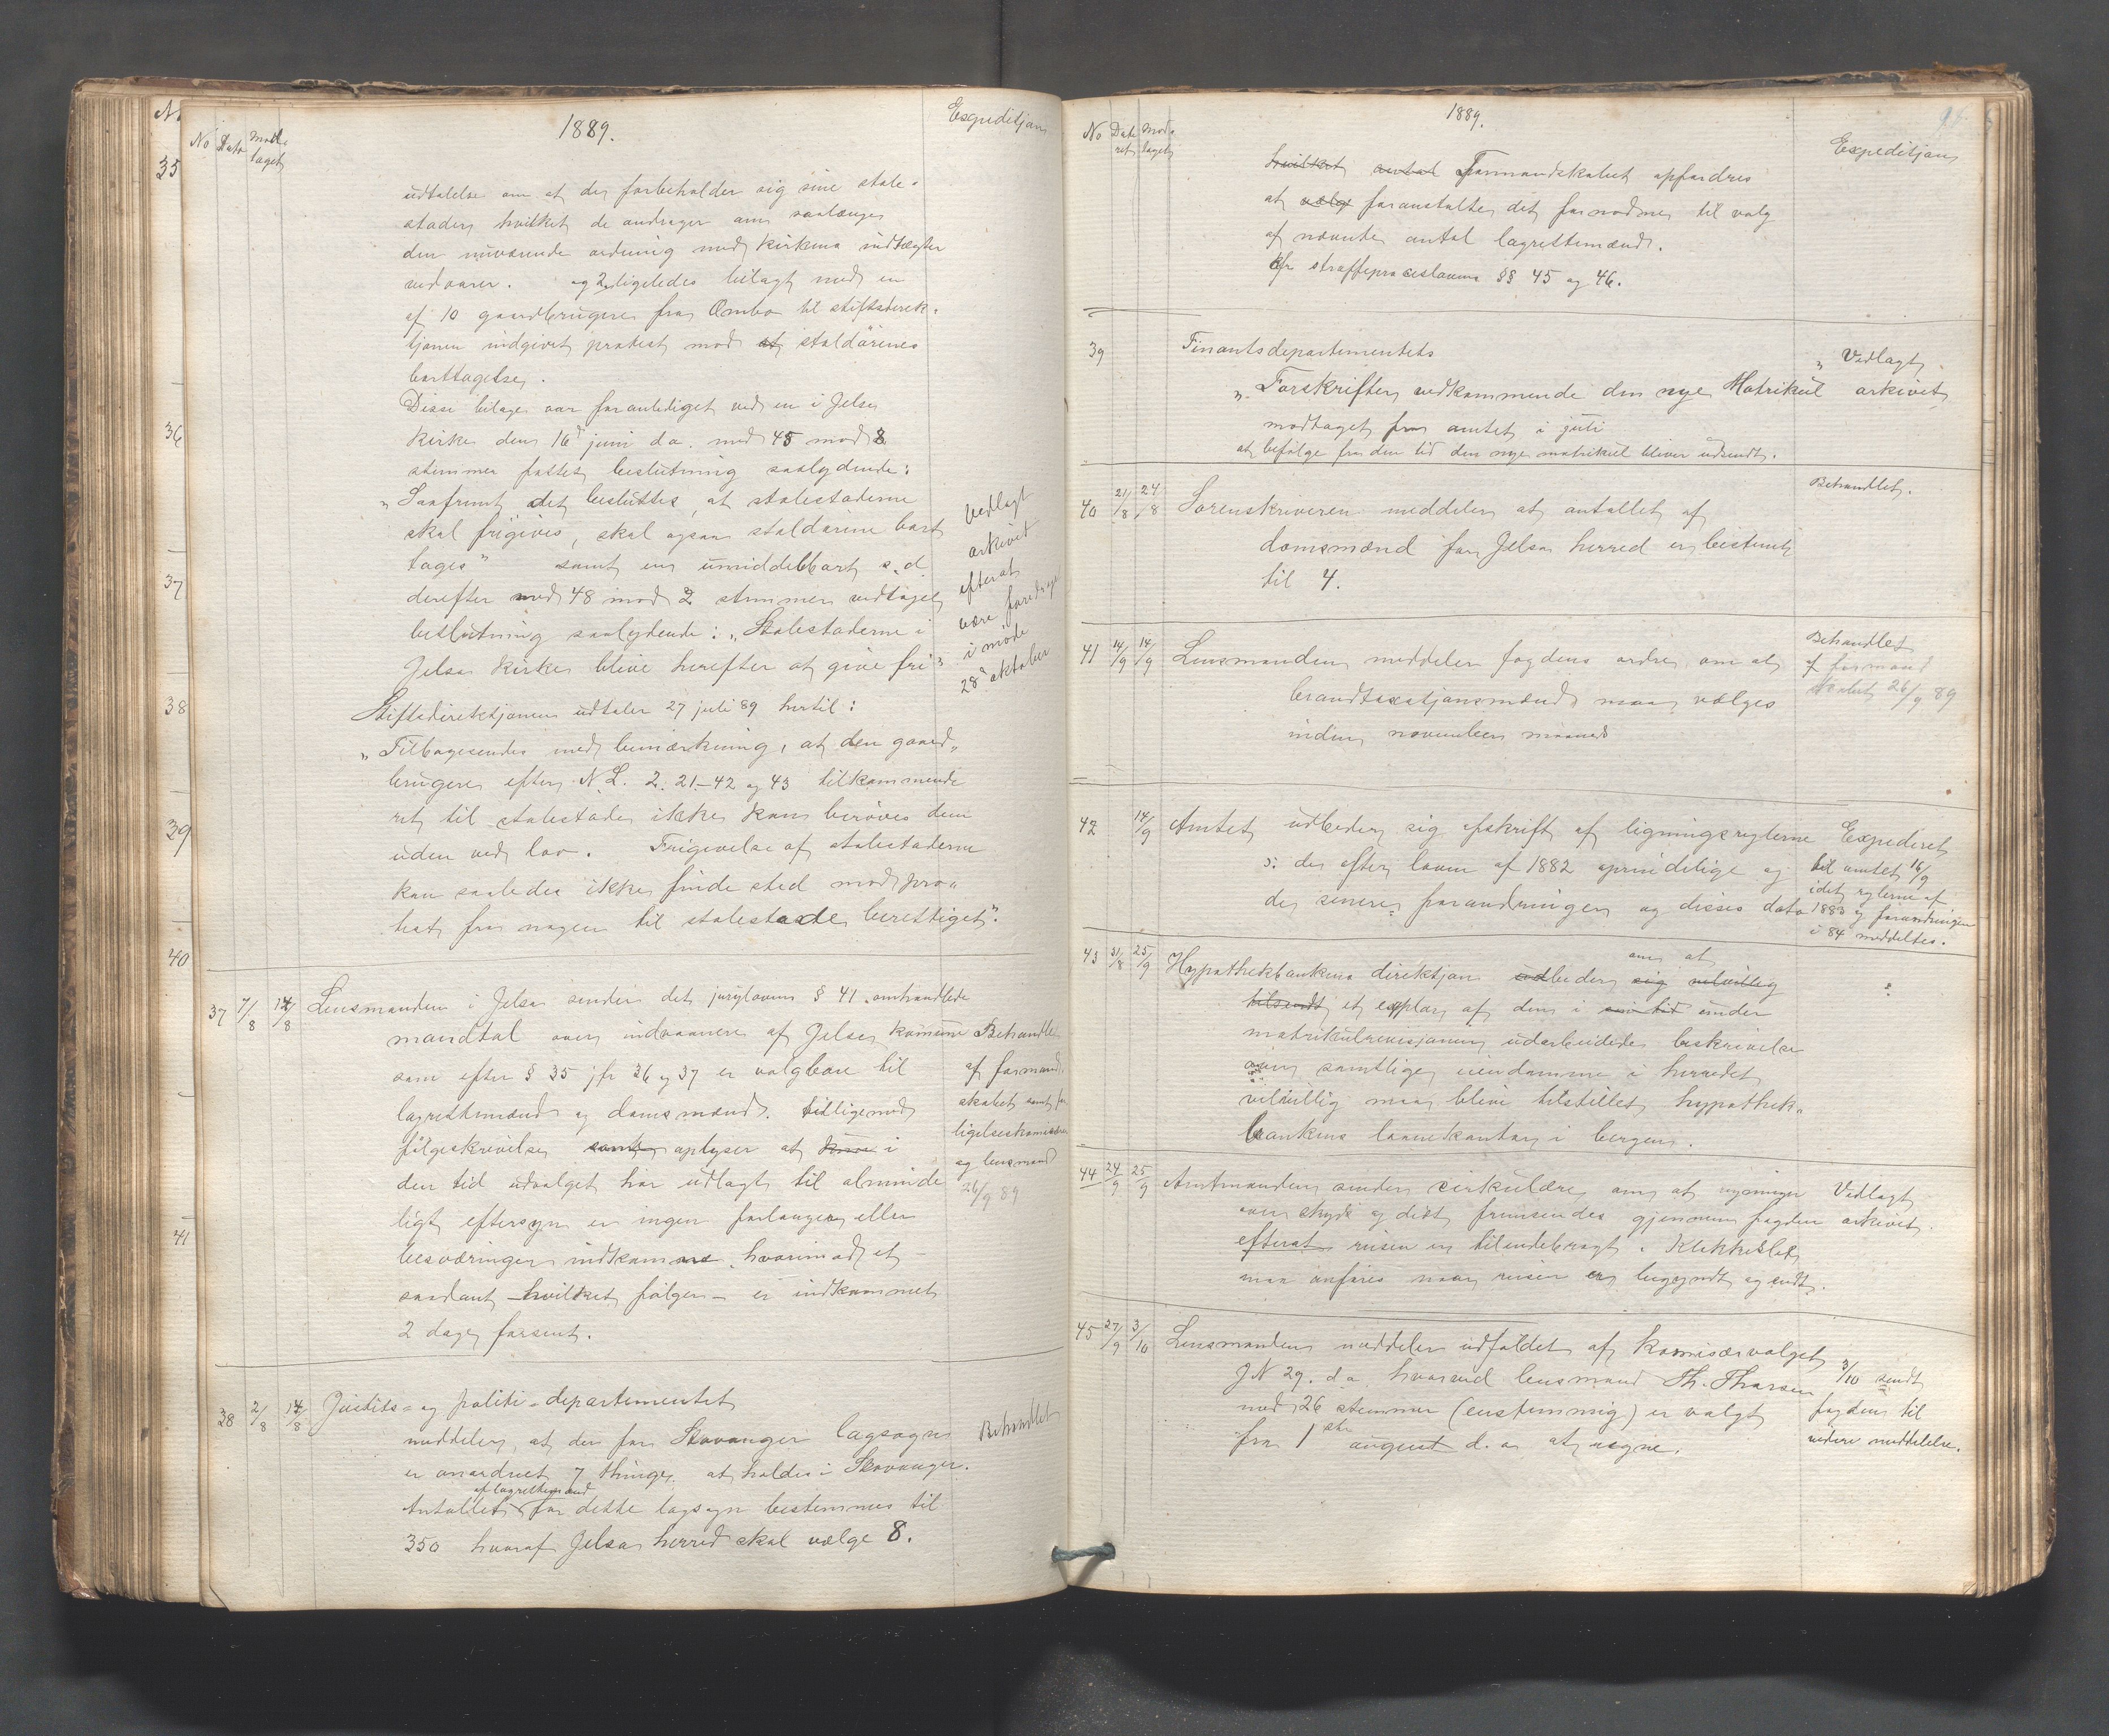 1889.
Expeditjon
No Dato Mod-
taget
udtalelse om at de forbeholder sig sine stole-
stader hvilket de andrager om saalænge
den nuværende ordning med kirkens indtægter
vedvarer. og 2, ligeledes bilagt med en
af 10 gaardbrugere fra Ombo til stiftsdirek-
tjonen indgivet protest mod at stoldørenes
borttagelse.
Disse bilage var foranlediget ved en i Jelse
kirke den 16d juni d.a. med 45 mod 8
stemmer fattet beslutning saalydende:
"Saafremt det besluttes, at stolestaderne
skal frigives, skal ogsaa stoldørene bort
tages" samt en umiddelbart s.d.
derefter med 48 mod 2 stemmer vedtaget
beslutning saalydende: "Stolestaderne i
Jelse kirke blive herefter at give fri"
Vedlagt
arkivet
efterat
være foredraget
i møde
28d oktober
Stiftsdirektjonen udtaler 27 juli 89 hertil:
"Tilbagesendes med bemærkning, at den gaard-
brugere efter N.L. 2. 21-42 og 43 tilkommende
ret til stolestade ikke kan berøves dem
uden ved lov. Frigivelse af stolestaderne
kan saaledes ikke finde sted mod pro-
test fra nogen til stolestade berettiget".
37 7/8 14/8 Lensmanden i Jelse sender det jurylovens § 41 omhandlede
mandtal over indvaanere af Jelse komune
som efter § 35 jfr 36 og 37 er valgbare til
lagrettemænd og domsmænd. tilligemed
følgeskrivelse samt oplyser at i
den tid udvalget har udlagt til alminde
ligt eftersyn er ingen forlangen eller
besværinger indkomne, hvorimod et
saadant - hvilket følger - er indkommet
2 dage forsent.
Behandlet
af formand-
skabet samt for
ligelseskomissær
og lensmand
26/9 89
38 2/8 14/8 Justits- og politi-departementet
meddeler, at der for Stavanger lagsogn
er anordnet 7 thinge at holdes i Stavanger.
af lagrettemænd
Antallet for dette lagsogn bestemmes til
350 hvoraf Jelse herred skal vælge 8.
Behandlet
35
36
37
38
39
40
41
1889.
No Date
ret Mod-
taget
Expeditjon
hvilket antal Formandskabet opfordres
at vælg foranstalte det fornødne til valg
af nævnte antal lagrettemænd.
Cfr straffeproceslovens §§ 45 og 46.
39 Finantsdepartementets
"Forskrifter vedkommende den nye Matrikul
modtaget fra amtet i juli
at befølge fra den tid den nye matrikul bliver udsendt.
Vedlagt
arkivet
40 21/8 24/8 Sorenskriveren meddeler at antallet af
domsmænd for Jelse herred er bestemt
til 4.
Behandlet.
41 14/9 14/9 Lensmanden meddeler fogdens ordre om at
brandtaxatjonsmænd maa vælges
inden november maaned
Behandlet
af formand
skabet 26/9 89
42 14/9 Amtet udbeder sig afskrift af ligningsreglerne
ɔ: de efter loven af 1882 oprindelige og
de senere forandringer og disses dato
Expederet
til amtet 16/9
idet reglerne af
1883 og forandringen
i 84 meddeltes.
43 31/8 25/9 Hypothekbankens direktjon udbeder sig velvillig
om at
tilsendt et explar af den i sin tid under
matrikulrevisjonen udarbeidede beskrivelse
over samtlige eiendomme i herredet
velvillig maa blive tilstillet hypothek-
bankens laanekontor i bergen.
44 24/9 25/9 Amtmanden sender cirkulære om at regninger
over skyds og diæt fremsendes gjennem fogden
efterat reisen er tilendebragt. Klokkeslet
maa anføres naar reisen er begyndt og endt.
Vedlagt
arkivet.
45 27/9 3/10 Lensmanden meddeler udfaldet af komisærvalget
JN 29. d.a. hvorved lensmand Th. Thorsen
med 26 stemmer (enstemmig) er valgt
fra 1ste august d.a. at regne.
3/10 sendt
fogden til
videre meddelelse.